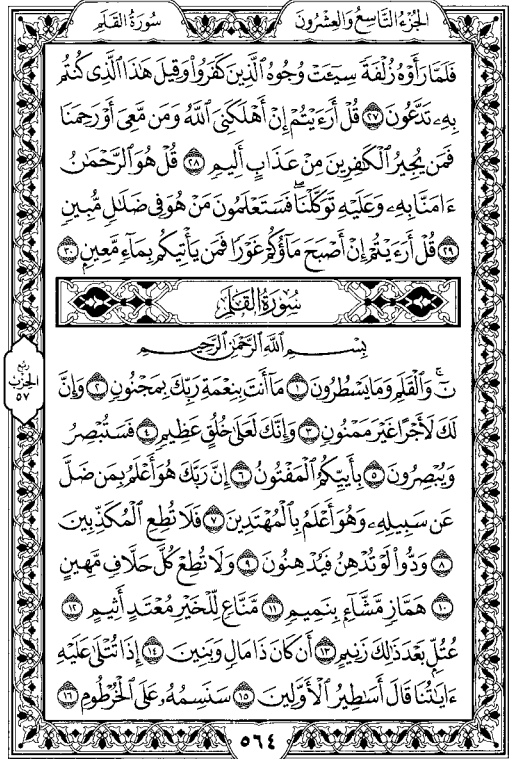 سُورَةُ القَلَمِ
الجُزْءُ التَّاسِعُ وَالعِشْرُونَ
فَلَمَّا رَأَوْهُ زُلْفَةً سِيٓـَٔتْ وُجُوهُ ٱلَّذِينَ كَفَرُوا۟ وَقِيلَ هَٰذَا ٱلَّذِى كُنتُم
بِهِۦ تَدَّعُونَ ٢٧ قُلْ أَرَءَيْتُمْ إِنْ أَهْلَكَنِىَ ٱللَّهُ وَمَن مَّعِىَ أَوْ رَحِمَنَا
فَمَن يُجِيرُ ٱلْكَٰفِرِينَ مِنْ عَذَابٍ أَلِيمٍ ٢٨ قُلْ هُوَ ٱلرَّحْمَٰنُ
ءَامَنَّا بِهِۦ وَعَلَيْهِ تَوَكَّلْنَا ۖ فَسَتَعْلَمُونَ مَنْ هُوَ فِى ضَلَٰلٍ مُّبِينٍ
٢٩ قُلْ أَرَءَيْتُمْ إِنْ أَصْبَحَ مَآؤُكُمْ غَوْرًا فَمَن يَأْتِيكُم بِمَآءٍ مَّعِينٍۭ ٣٠
سُورَةُ القَلَمِ
بِسْمِ ٱللَّهِ ٱلرَّحْمَٰنِ ٱلرَّحِيمِ
نٓ ۚ وَٱلْقَلَمِ وَمَا يَسْطُرُونَ ١ مَآ أَنتَ بِنِعْمَةِ رَبِّكَ بِمَجْنُونٍ ٢ وَإِنَّ
لَكَ لَأَجْرًا غَيْرَ مَمْنُونٍ ٣ وَإِنَّكَ لَعَلَىٰ خُلُقٍ عَظِيمٍ ٤ فَسَتُبْصِرُ
وَيُبْصِرُونَ ٥ بِأَييِّكُمُ ٱلْمَفْتُونُ ٦ إِنَّ رَبَّكَ هُوَ أَعْلَمُ بِمَن ضَلَّ
عَن سَبِيلِهِۦ وَهُوَ أَعْلَمُ بِٱلْمُهْتَدِينَ ٧ فَلَا تُطِعِ ٱلْمُكَذِّبِينَ
٨ وَدُّوا۟ لَوْ تُدْهِنُ فَيُدْهِنُونَ ٩ وَلَا تُطِعْ كُلَّ حَلَّافٍ مَّهِينٍ
١٠ هَمَّازٍ مَّشَّآءٍۭ بِنَمِيمٍ ١١ مَّنَّاعٍ لِّلْخَيْرِ مُعْتَدٍ أَثِيمٍ ١٢
عُتُلٍّۭ بَعْدَ ذَٰلِكَ زَنِيمٍ ١٣ أَن كَانَ ذَا مَالٍ وَبَنِينَ ١٤ إِذَا تُتْلَىٰ عَلَيْهِ
ءَايَٰتُنَا قَالَ أَسَٰطِيرُ ٱلْأَوَّلِينَ ١٥ سَنَسِمُهُۥ عَلَى ٱلْخُرْطُومِ ١٦
ربع
الحزب
٥٧
٥٦٤